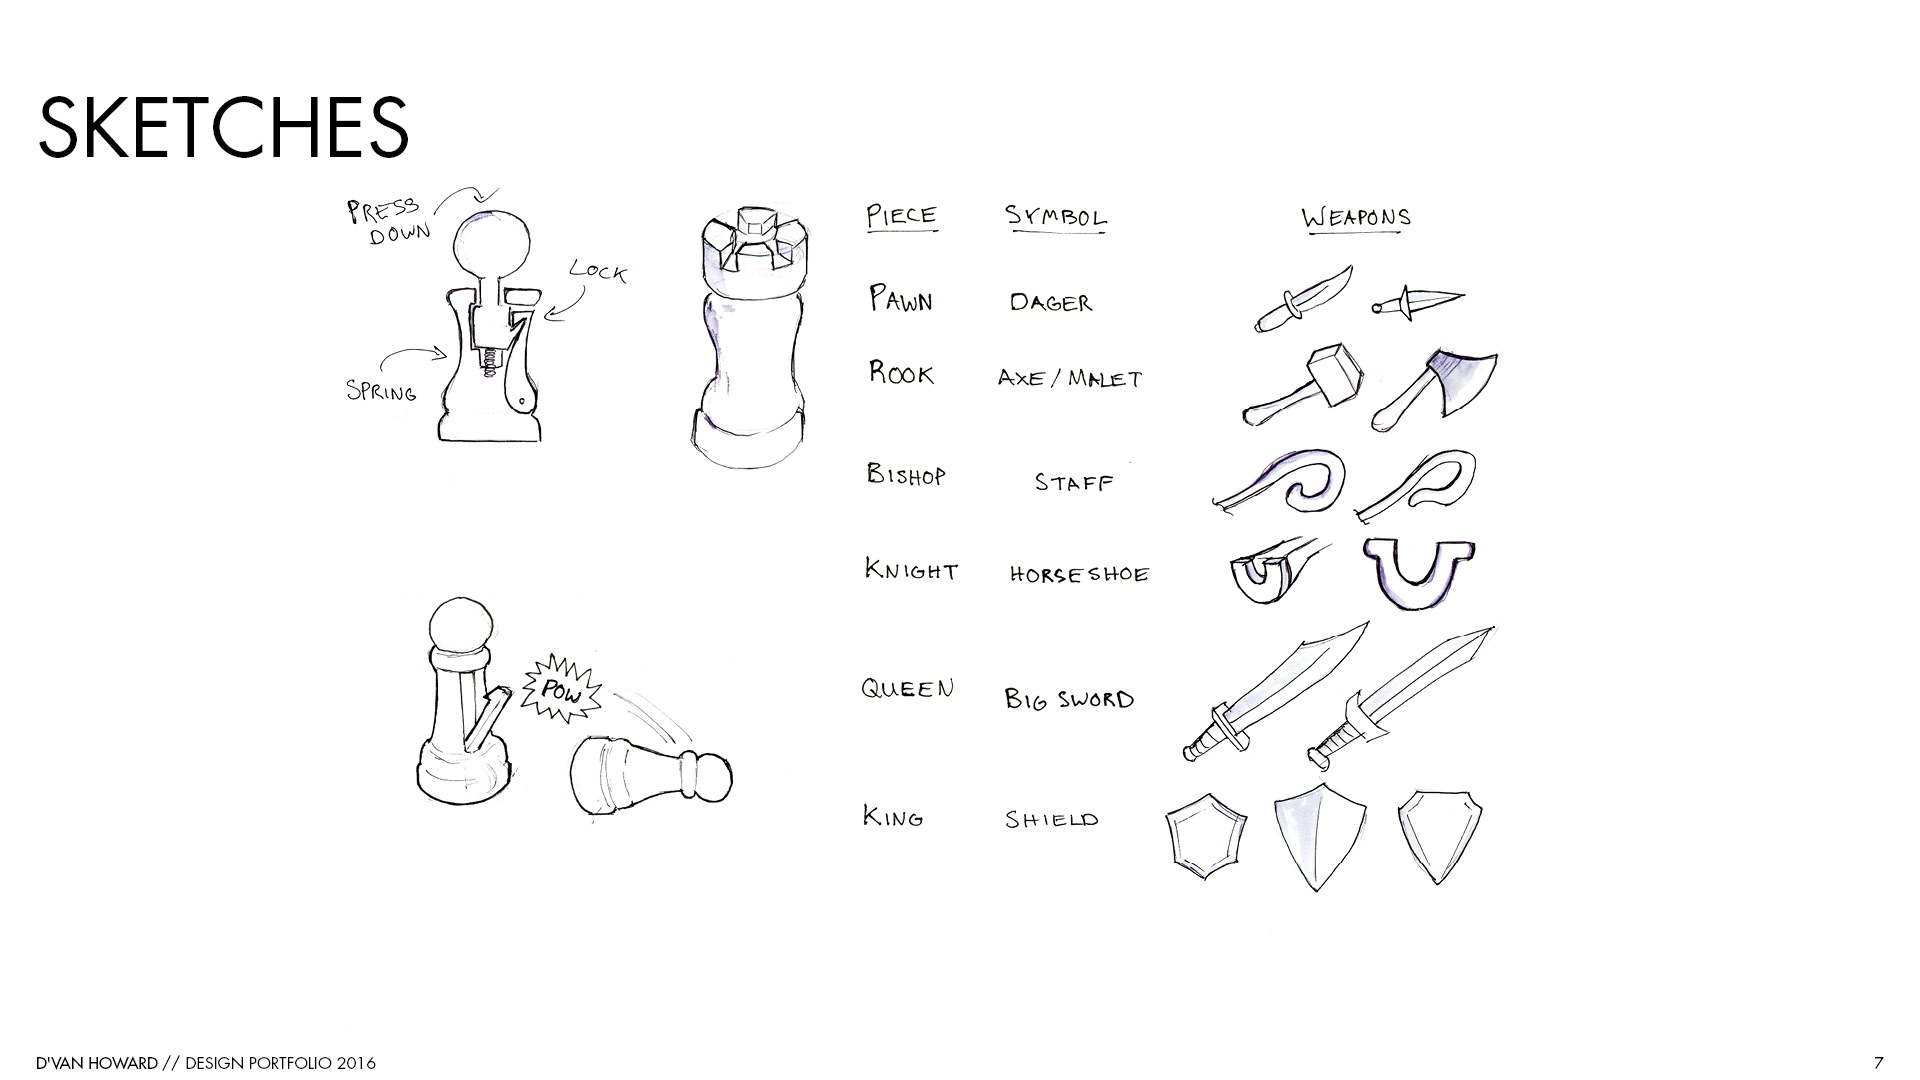 SKETCHES
PRESS
DOWN
LOCK
SPRING
POW
PIECE SYMBOL WEAPONS
PAWN DAGER
ROOK AXE / MALET
BISHOP STAFF
KNIGHT HORSESHOE
QUEEN BIG SWORD
KING SHIELD
D'VAN HOWARD // DESIGN PORTFOLIO 2016
7